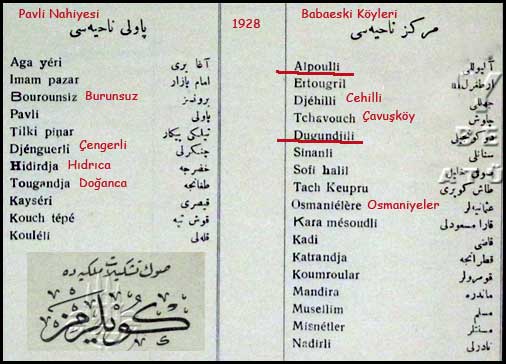 Pavli Nahiyesi
پاولى ناحيه‌سى
Aga yéri آغا يرى
Imam pazar امام پازار
Bourounsiz Burunsuz برونسز
Pavli پاولى
Tilki pinar تيلكى پيكار
Djénguerli Çengerli جنكرلى
Hidirdja Hıdrıca خضرجه
Tougandja Doğanca طغانجه
Kayséri قيصرى
Kouch tépé قوش تپه
Kouléli قله‌لى
صوك تشكيلات ملكيه ده
كويلرمز
1928
Babaeski Köyleri
مركز ناحيه‌سى
Alpoulli آلپوللى
Ertougril ارطغرل
Djéhilli Cehilli جهللى
Tchavouch Çavuşköy چاوش
Dugundjili دوكونجيلى
Sinanli سنانلى
Sofi halil صوفى خليل
Tach Keupru طاش كوپرى
Osmaniélère Osmaniyeler عثمانيه‌لر
Kara mésoudli قارا مسعودلى
Kadi قاضى
Katrandja قطرانجه
Koumroular قومرولر
Mandira ماندره
Musellim مسلم
Misnétler
Nadirli نادرلى